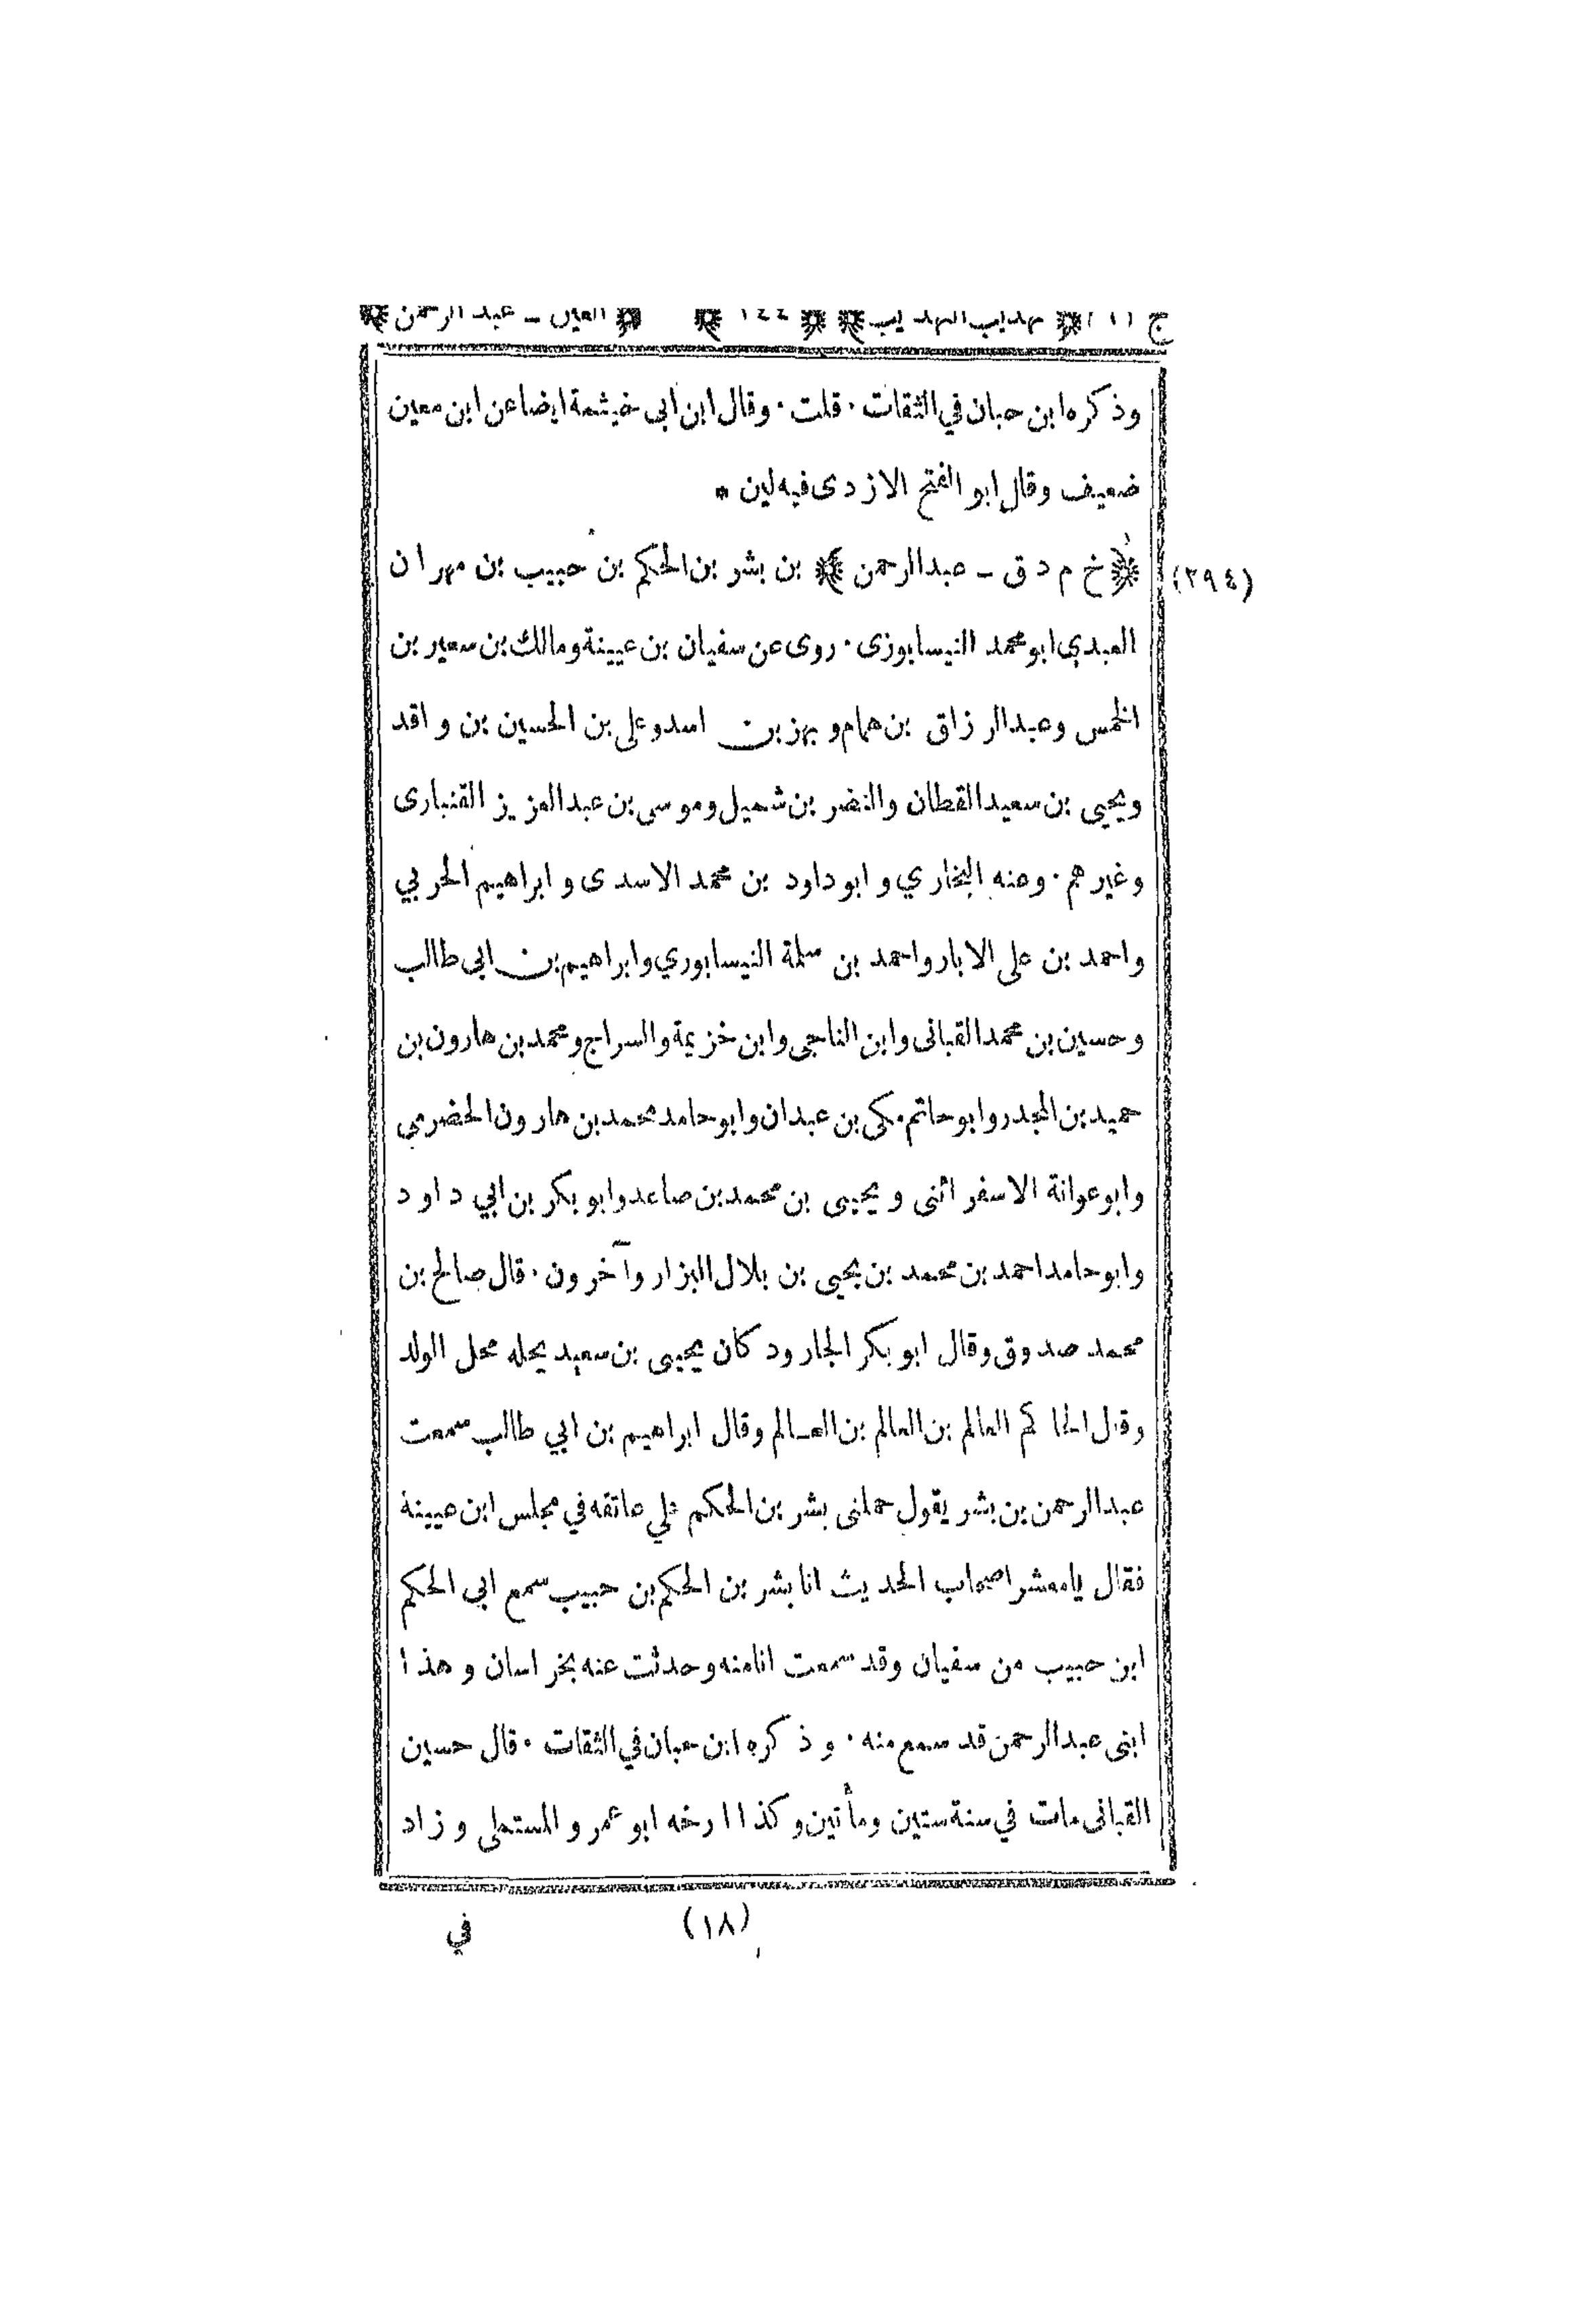 تهذيب التهذيب ١٤٤ العين - عبد الرحمن
وذكره ابن حبان في الثقات · قلت · وقال ابن ابى خيثمة ايضا عن ابن معين
ضعيف وقال ابو الفتح الازدى فيه لين *
(٢٩٤) خ م د ق - عبدالرحمن بن بشر بن الحكم بن حبيب بن مهران
العبدي ابو محمد النيسابوزى · روى عن سفيان بن عيينة ومالك بن سعير بن
الخمس وعبدالرزاق بن همام و بهز بن اسد وعلى بن الحسين بن واقد
ويحيى بن سعيد القطان والنضر بن شميل وموسى بن عبدالعزيز القنبارى
وغيرهم · وعنه البخاري و ابوداود بن محمد الاسدى و ابراهيم الحربي
واحمد بن على الابار واحمد بن سلمة النيسابوري وابراهيم بن ابى طالب
وحسين بن محمد القبانى وابن الناجى وابن خزيمة والسراج ومحمد بن هارون بن
حميد بن المجدر وابوحاتم مكى بن عبدان وابوحامد محمد بن هارون الحضرمي
وابوعوانة الاسفرائنى و يحيى بن محمد بن صاعد وابوبكر بن ابي داود
وابوحامد احمد بن محمد بن يحيى بن بلال البزار وآخرون · قال صالح بن
محمد صدوق وقال ابوبكر الجارود كان يحيى بن سعيد يحله محل الولد
وقال الحاكم العالم بن العالم بن العالم وقال ابراهيم بن ابي طالب سمعت
عبدالرحمن بن بشر يقول حملنى بشر بن الحكم على عاتقه في مجلس ابن عيينة
فقال يا معشر اصحاب الحديث انا بشر بن الحكم بن حبيب سمع ابى الحكم
ابن حبيب من سفيان وقد سمعت انا منه وحدثت عنه بخراسان وهذا
ابنى عبدالرحمن قد سمع منه · وذكره ابن حبان في الثقات · قال حسين
القبانى مات في سنة ستين ومأتين وكذا ارخه ابوعمرو المستملى وزاد
(١٨) في